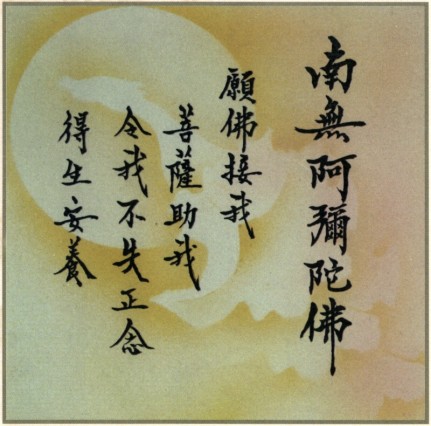 南無阿彌陀佛
願佛接我
菩薩助我
令我不失正念
得生安養